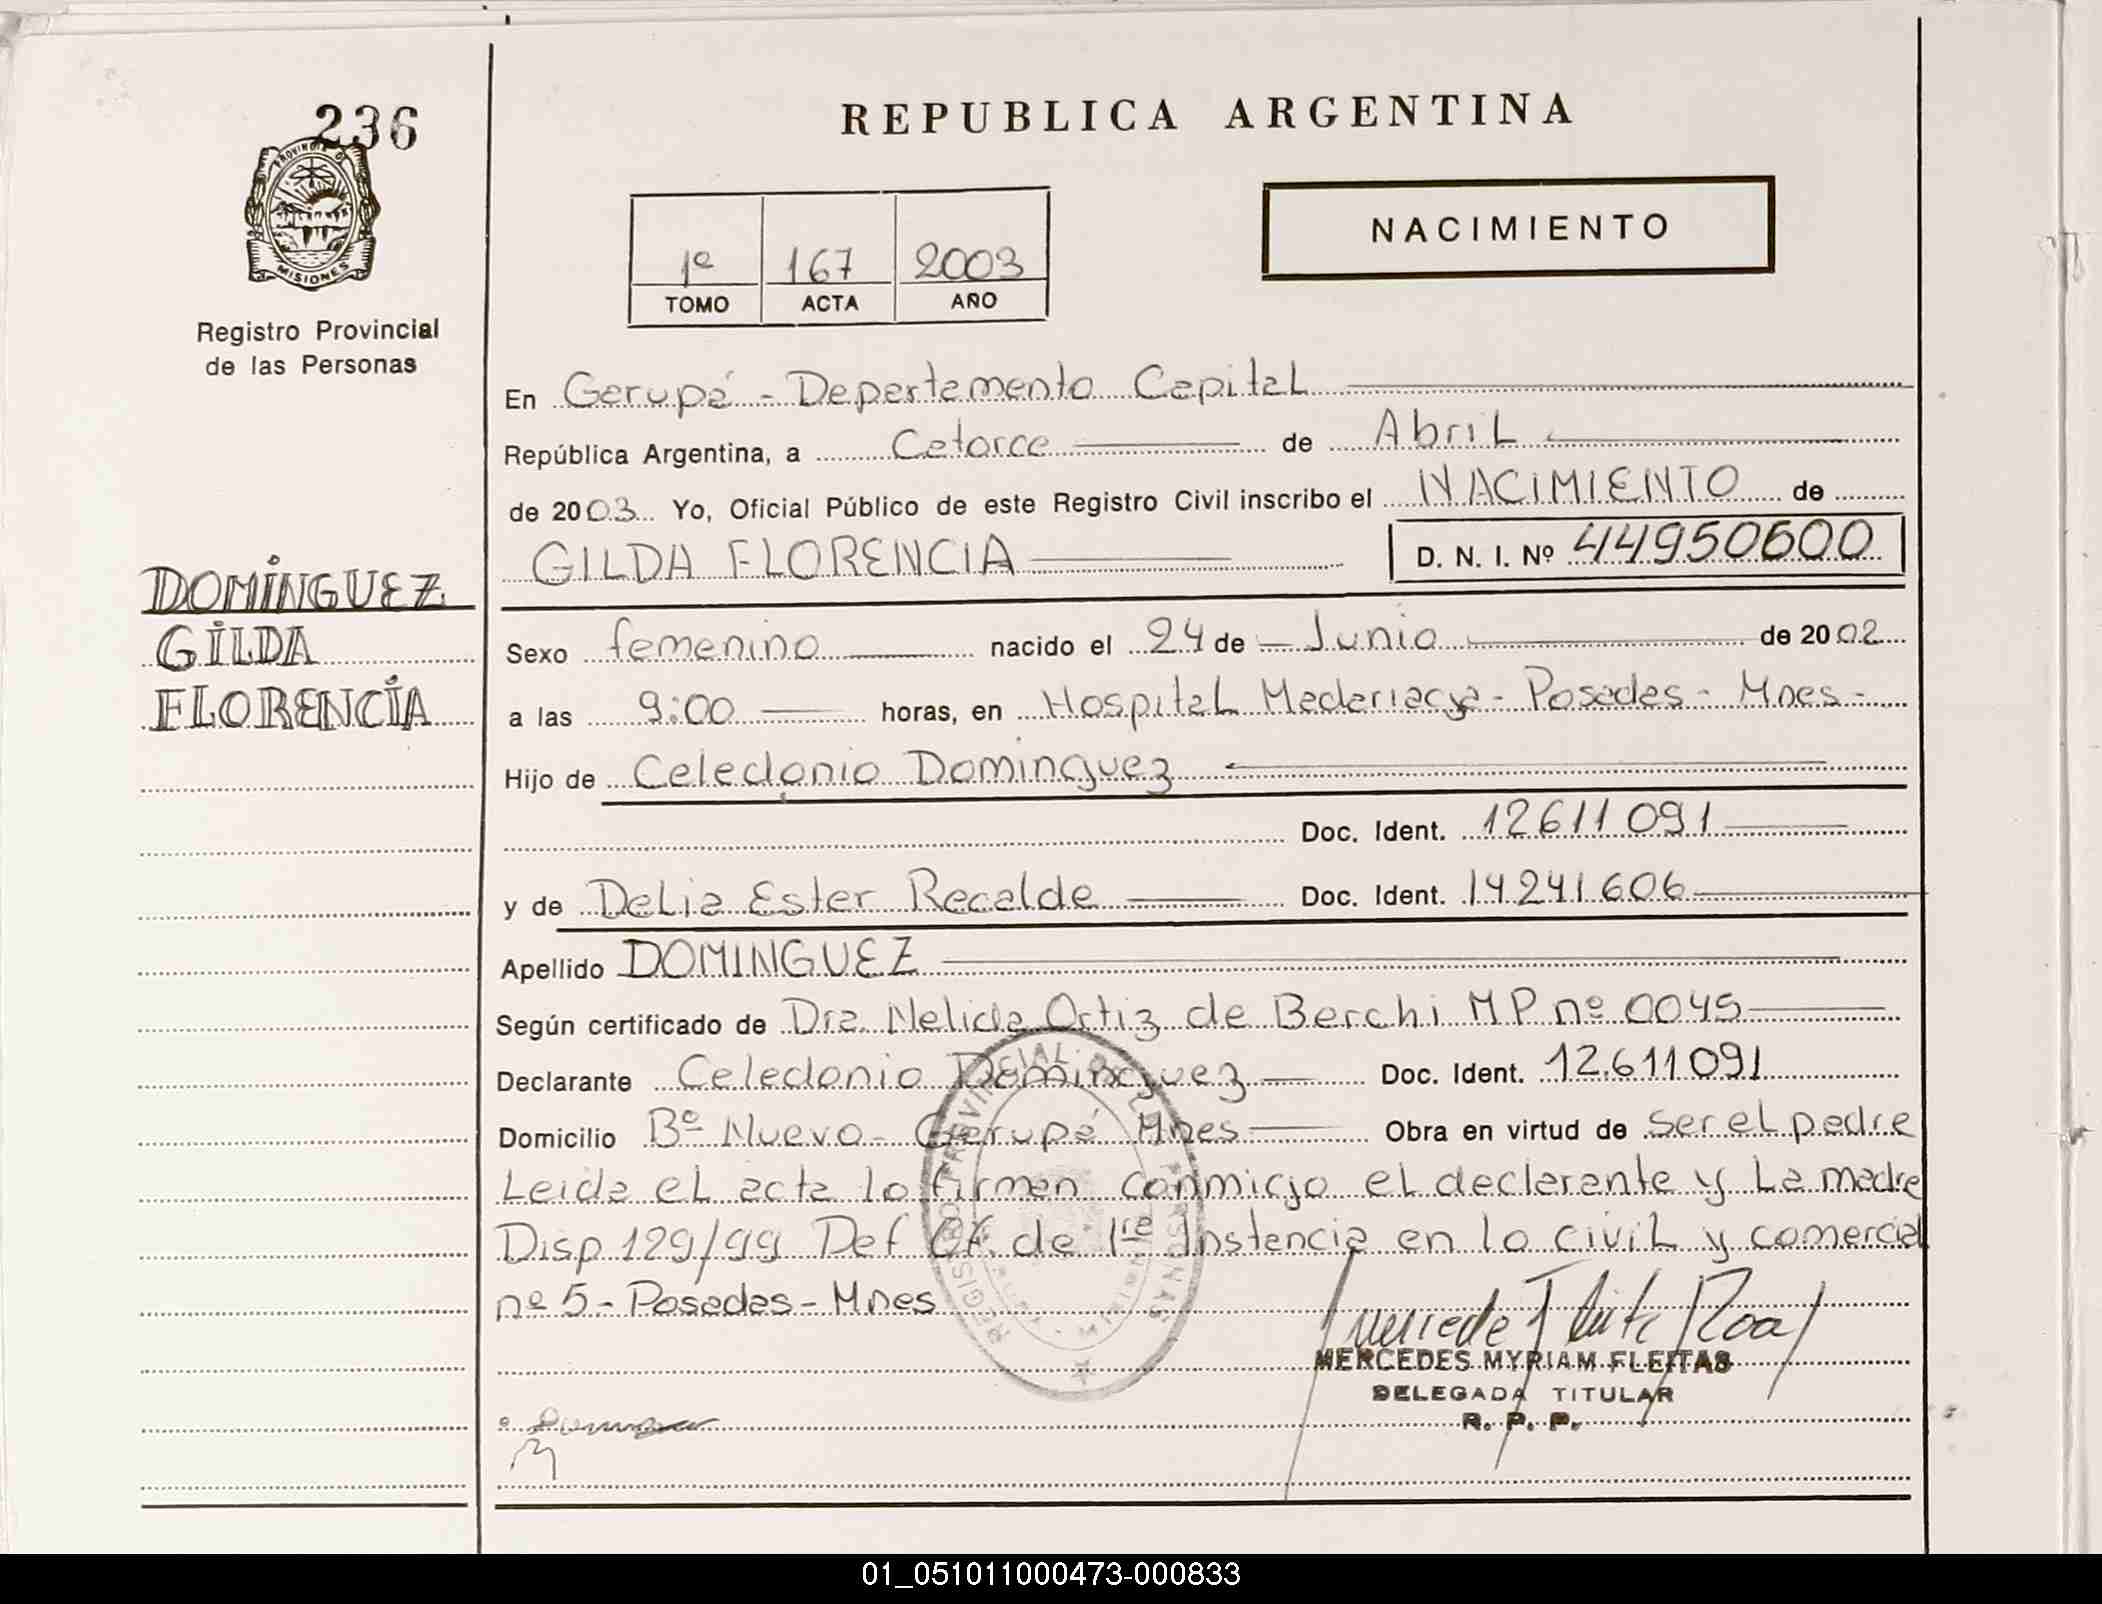 236
REPUBLICA ARGENTINA
PROVINCIA DE
MISIONES
Registro Provincial
de las Personas
1º 167 2003
TOMO ACTA AÑO
NACIMIENTO
En Garupá - Departamento Capital
República Argentina, a Catorce de Abril
de 2003 Yo, Oficial Público de este Registro Civil inscribo el NACIMIENTO de
GILDA FLORENCIA D. N. I. Nº 44950600
DOMINGUEZ
GILDA
FLORENCIA
Sexo femenino nacido el 24 de Junio de 2002
a las 9:00 horas, en Hospital Madariaga - Posadas - Mnes -
Hijo de Celedonio Dominguez
Doc. Ident. 12611091
y de Delia Ester Recalde Doc. Ident. 14241606
Apellido DOMINGUEZ
Según certificado de Dra. Nelida Ortiz de Berchi MP nº 0045
Declarante Celedonio Dominguez Doc. Ident. 12.611091
Domicilio Bº Nuevo - Garupá Mnes Obra en virtud de ser el padre
Leida el acta lo firman conmigo el declarante y La madre
Disp 129/99 Def Of. de 1ra Instancia en lo civil y comercial
nº 5 - Posadas - Mnes
REGISTRO PROVINCIAL DE LAS PERSONAS
MERCEDES MYRIAM FLEITAS
DELEGADA TITULAR
R. P. P.
01_051011000473-000833